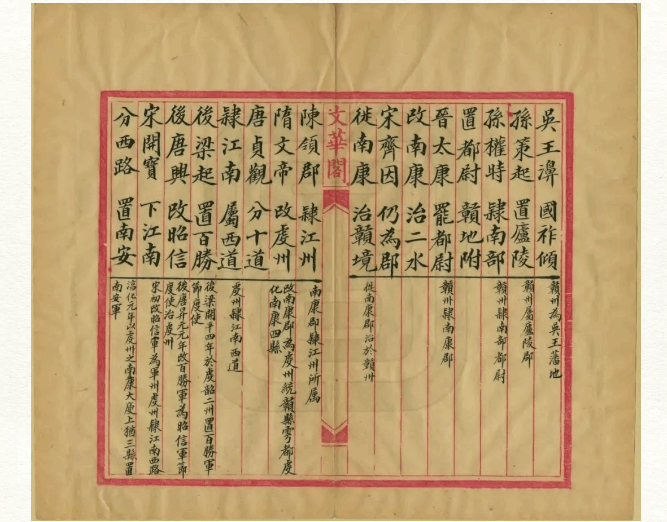 吳王濞 國祚傾
贛州為吳王藩地
孫策起 置廬陵
贛州屬廬陵郡
孫權時 隸南部
贛州隸南部都尉
置都尉 贛地附
晉太康 罷都尉
贛州隸南康郡
改南康 治二水
宋齊因 仍為郡
徙南康 治贛境
徙南康郡治於贛州
文華閣
陳領郡 隸江州
南康郡隸江州所屬
隋文帝 改虔州
改南康郡為虔州統贛縣雩都虔
化南康四縣
唐貞觀 分十道
隸江南 屬西道
虔州隸江南西道
後梁起 置百勝
後梁開平四年於虔韶二州置百勝軍
節度使
後唐興 改昭信
後唐昇元元年改百勝軍為昭信軍節
度使治虔州
宋開寶 下江南
宋初改昭信軍為軍州虔州隸江南西路
分西路 置南安
淳化元年以虔州之南康大庾上猶三縣置
南安軍